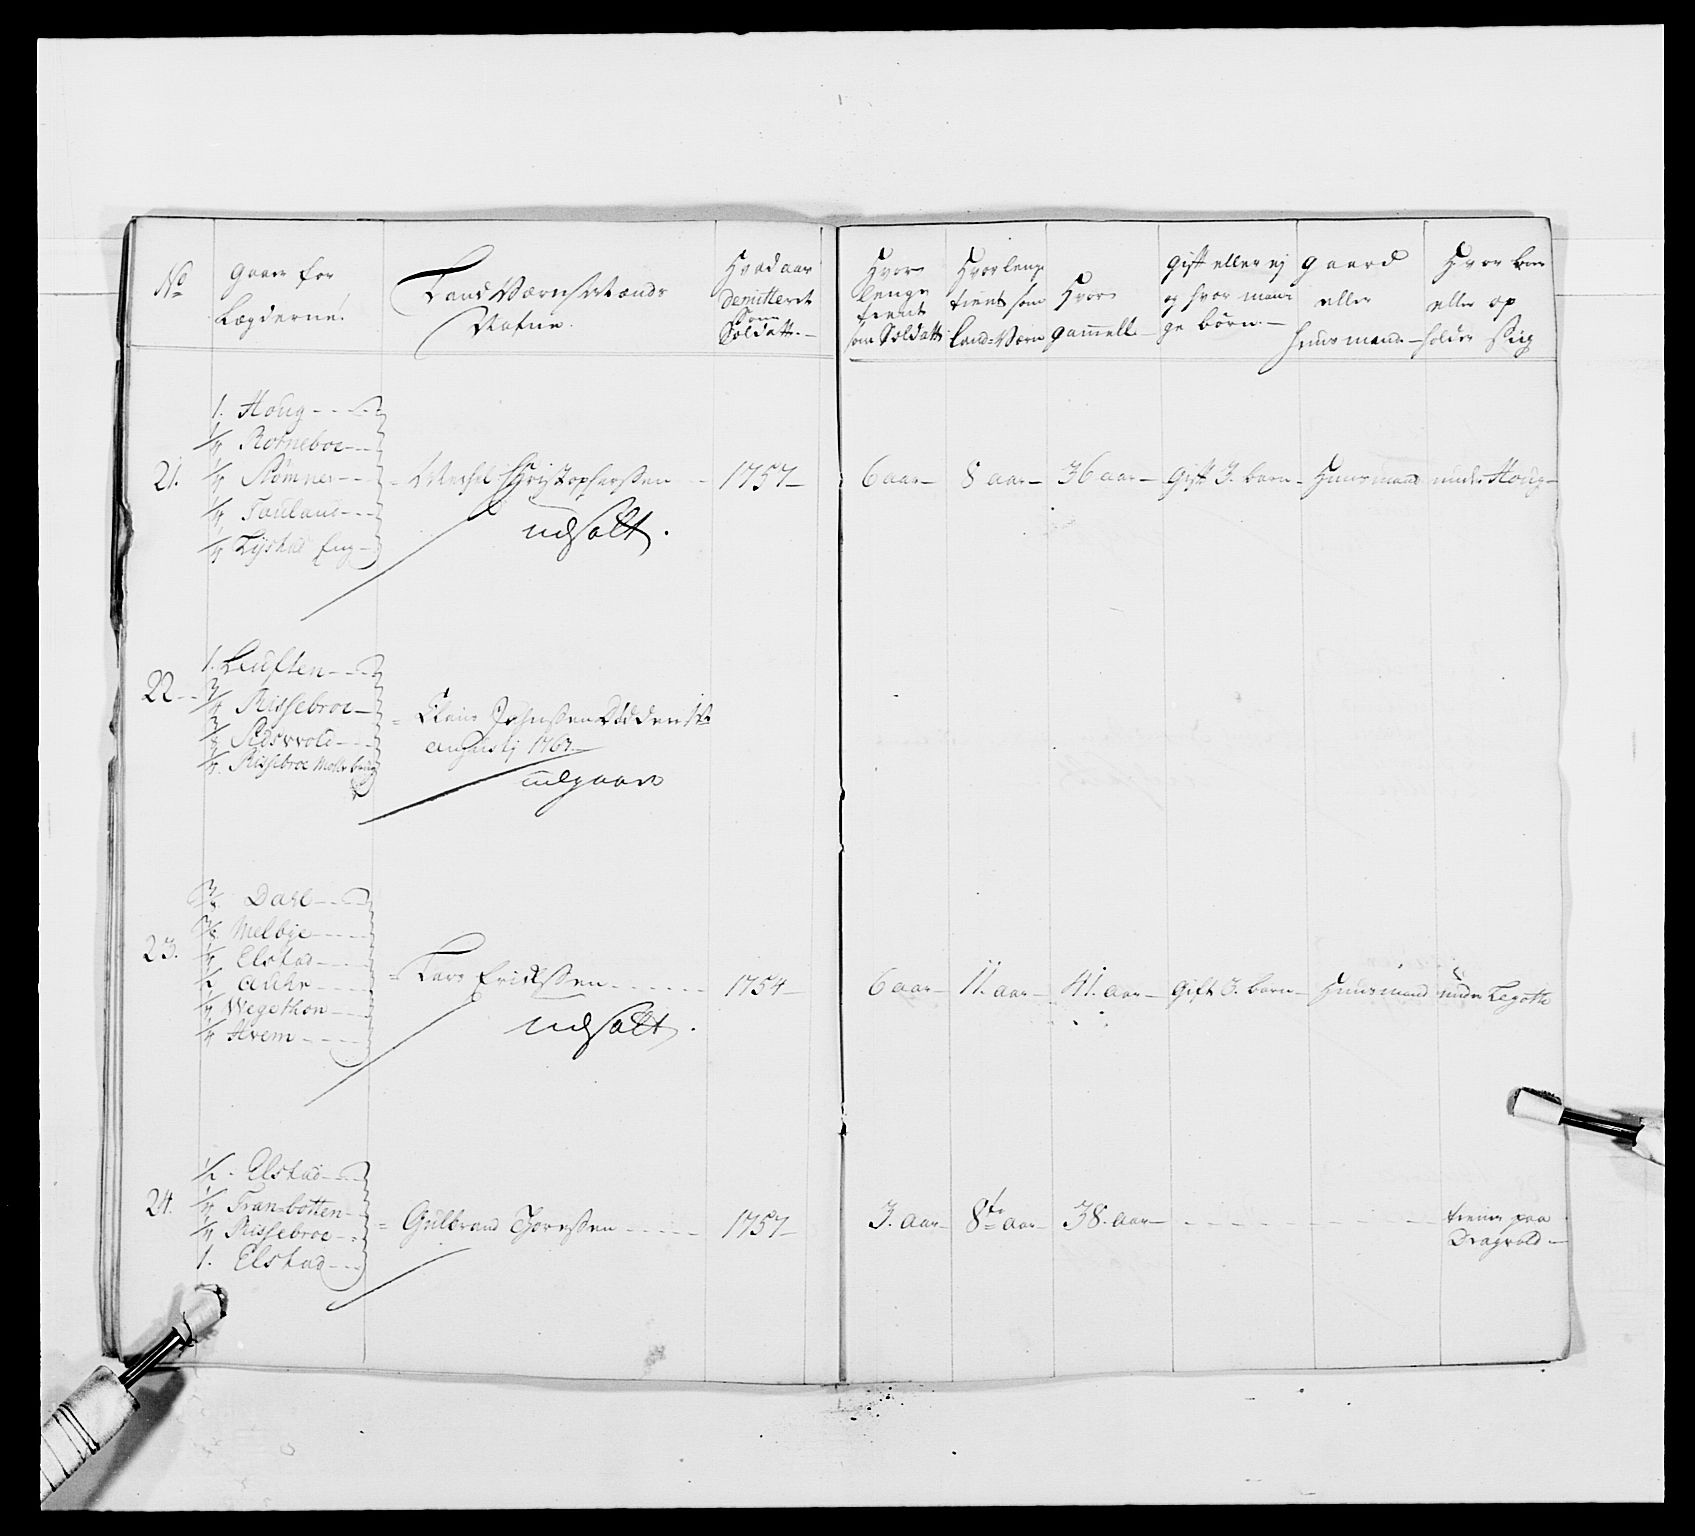 No
Gaarer for
Lægderne.
Land Værns Mænds
Nafne.
Hvad aar
demitteret
Som
Soldatt.
Hvor
lenge
tient
som Soldatt
Hvor lenge
tient som
Land-Værn
Hvor
gammell
Gift eller ej
og hvor man
ge børn.
Gaard
eller
Huusmand
Hvor boer
eller op
holder siig
21.
1. Houg
1/4 Rotneboe
1/4 Stømner
1/4 Fauland
1/4 Lystad Eng
Mechel Christophersen
udsatt.
1757
6 aar
8 aar
36 aar
Gift 3. barn
Huusmand
under Houg
22
1. Luften
3/4 Rissebroe
3/8 Eidsvold
1/4. Rissebroe
Claus Johnsen død den
Augustj 1767
udgaaer
23.
3/8. Dahl
3/8. Melbye
1/4 Elstad
1/2
1/4 Wegethon
1/4 Hvem
Lars Erichsen
udsatt.
1754
6 aar
11. aar
41. aar
Gift 3. barn
Huusmand
under
24.
1/2. Elstad
1/4 Franbotten
1/4 Rissebroe
1. Elstad
Gulbrand Thorsen
1757
3. aar
8te aar
38. aar
tiener paa
Dragvold